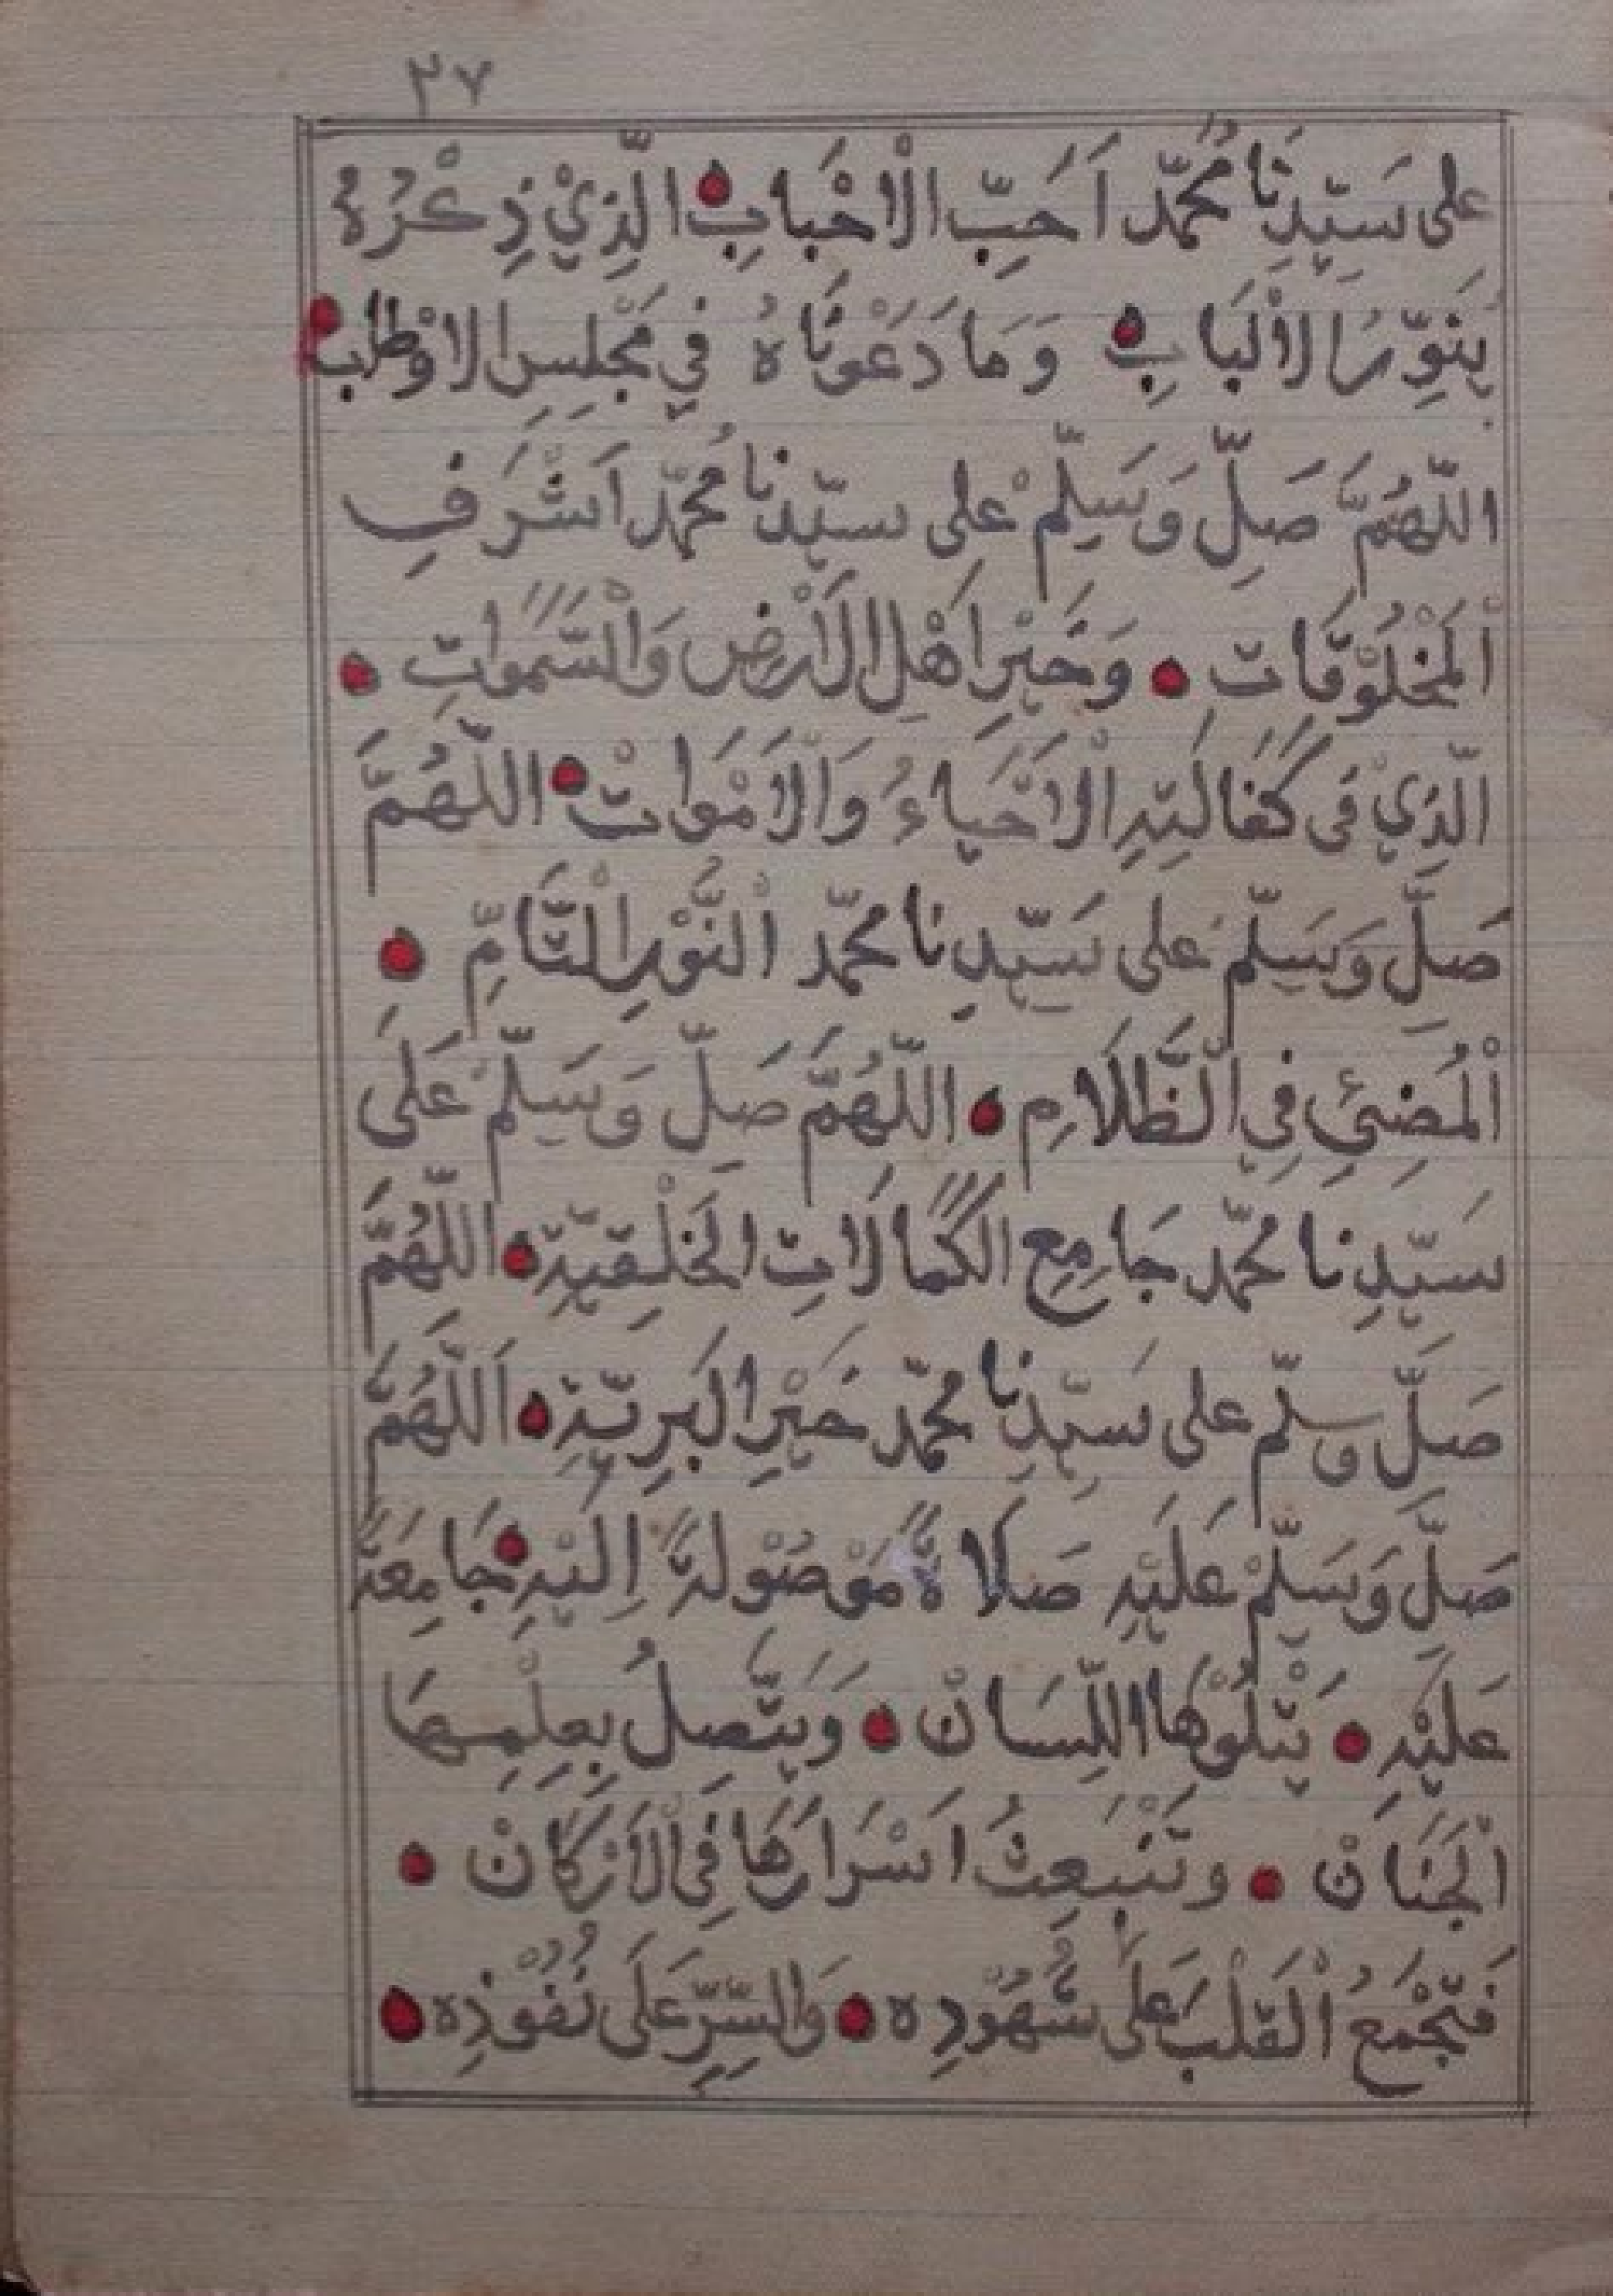 ٢٧
على سَيِّدِنَا مُحَمّد اَحَبِّ الْاَحْبابِ الَّذِيْ ذِكْرُهُ
يُنَوِّرُ الْاَلْبَابِ وَمَا دَعَوْنَاهُ فِي مَجْلِسِ
اللّهُمَّ صَلِّ وَسَلِّمْ على سيّدنا مُحَمّد اَشْرَفِ
اْلمَخْلُوْقَات وَخَيْرِ اَهْلِ الْاَرْضِ وَالْسَّمَواتِ
الَّذِيْ فى كَفَالَتِهِ الْاَحْيَاءُ وَالْاَمْوَاتْ اللّهُمَّ
صَلِّ وَسَلِّمْ على سَيّدِنا محمّد اْلنُّوْرِ الْتَّامِّ
اْلمُضِيْئِ فِي الْظَّلَامِ اللّهُمَّ صَلِّ وَسَلِّمْ عَلَى
سَيّدِنا محمّد جَامِعِ الكَمَالَاتِ الخَلْقِيَّةِ اللّهُمَّ
صَلِّ وسلّم على سَيّدِنا محمّد خَيْرِ البَرِيَّةِ اَللّهُمَّ
صَلِّ وَسَلِّمْ عَلَيْهِ صَلَاةً مَوْصُوْلَةً اِلَيْهِ جَامِعَةً
عَلَيْهِ يَتْلُوْهَا اللِّسَانْ وَيَتَّصِلُ بِعِلْمِهَا
اْلجَنَانْ وتَنْبَعِثُ اَسْرَارُهَا فِى الْاَرْكَانْ
فَتَجْمَعُ اْلقَلْبَ عَلى شُهُوْدِه وَالسِّرِّ عَلَى نُفُوْذِه